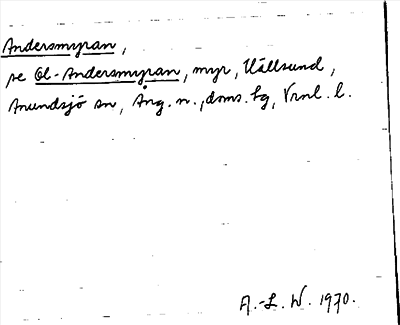 Andersmyran,
se Ol-Andersmyran, myr, Källsund,
Anundsjö sn, Ång. n., doms. sg, Vrnl. l.
A.-L. W. 1970.